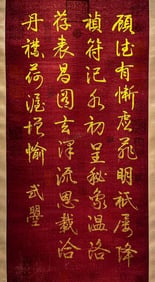 顧德有慚虔菲明祇屢降
禎符汜水初呈秘象温洛
荐表昌圖玄澤流恩載洽
丹襟荷渥增愉 武曌